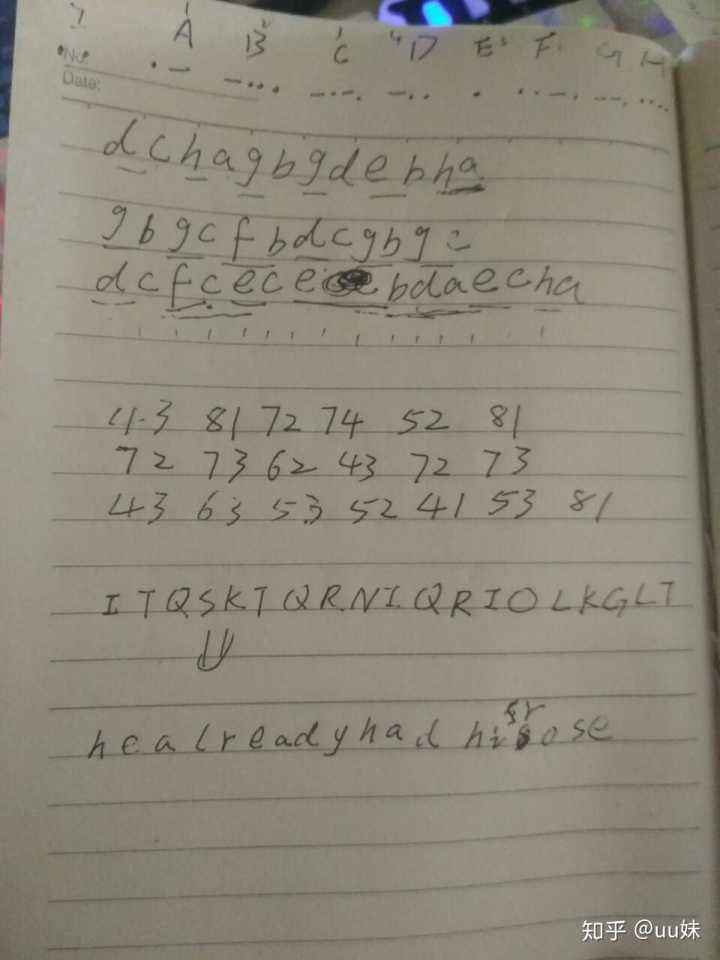 A B C D E F G H
No.
Date:
·− −··· −·−· −·· · ··−· −−· ····
dchagbgdebha
gbgcfbdcgbg=
dcfcece bdaecha
43 81 72 74 52 81
72 73 62 43 72 73
43 63 53 52 41 53 81
ITQSKTQRNIQRIOLKGLT
healreadyhad hi ose
知乎 @uu妹